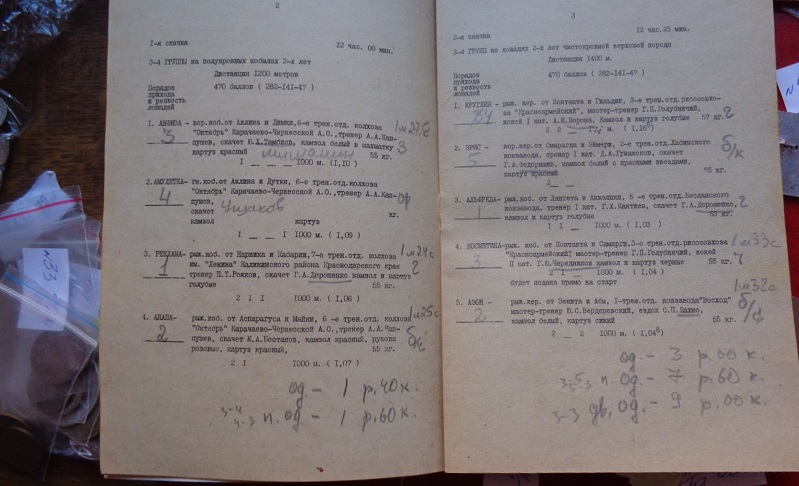 2
1-я скачка 12 час. 00 мин.
3-4 ГРУППЫ на полукровных кобылах 2-х лет
Дистанция 1200 метров
Порядок прихода и резвость лошадей
470 баллов ( 282-141-47 )
1. АНФИЗА - вор.коб.от Аклина и Дымки,6-е трен.отд. колхоза
"Октябрь" Карачаево-Черкесской А.О.,тренер А.А.Кап-
пушев, скачет камзол белый в шахматку
картуз красный 55 кг.
3
1000 м. (1,10)
2.АМУЛЕТКА- гн.коб.от Аклина и Дутки, 6-е трен.отд.колхоза
"Октябрь" Карачаево-Черкесской А.О.,тренер А.А.Кап-
пушев,
4
скачет кг.
камзол картуз
I _ _ I 1000 м. (1,09)
3. РЕКЛАМА- рыж.коб. от Нарвика и Кабарги,7-е трен.отд. колхоза
им. "Ленина" Калининского района Краснодарского края
тренер П.Т.Рожков, скачет Г.А.Дорошенко камзол и картуз
голубые 55 кг.
1
1м24с
2
2 I I 1000 м. (1,06)
4. АНАПА- рыж.коб. от Аспарагуса и Майки, 6 -е трен.отд. колхоза
"Октябрь" Карачаево-Черкесской А.О., тренер А.А.Кап-
пушев, скачет К.А.Боотанов, камзол красный, рукава
розовые, картуз красный, 55 кг.
2
1м25с
2 I 1000 м. (1,07)
од. - 1 р.40к.
3-4
4-3 п.од. - 1 р.60к.
3
2-я скачка 12 час.25 мин.
3-4 ГРУПП на лошадях 2-х лет чистокровной верховой породы
Дистанция 1400 м.
Порядок прихода и резвость лошадей
470 баллов ( 282-141-47)
1. КРУГЛИК - рыж. жер. от Контакта и Гильдии, 3-е трен.отд.рисосовхо-
за "Красноармейский", мастер-тренер Г.П.Голубничий,
ездок I кат. А.И.Ворона, Камзол и картуз голубые 57 кг.
2. ЭРОС - вер.жер.от Смарагда и Эймери, 2-е трен.отд.Хасинского
конзавода, тренер I кат. Д.А.Гуважоков, скачет
Г.А.Федоршин, камзол белый с красными звездами,
картуз красный 55 кг.
5
б/к
2 _ _
3. АЛЬФРЕДА- от Лонгета и Анналики, 5 -е трен.отд.Бесланского
конзавода, тренер I кат. Г.Х.Кантиев, скачет Г.А.Дорошенко,
камзол и картуз голубые 53 кг.
1
2
I I _ I 1000 м. (1,03 )
4. КОСМЕТИКА-рыж. коб. от Контакта и Самарги,3-е трен.отд.рисосовхоза
"Красноармейский" мастер-тренер Г.П.Голубничий, ездок
II кат. Г.Е.Чередников камзол и картуз черные 55 кг.
3
1м33с
2 I _ I 1000 м. (1,04 )
будет подана прямо на старт
5. АЗОН - рыж.жер. от Зенита и Абы, I-трен.отд. конзавода"Восход"
мастер-тренер В.С.Вердеревский, ездок С.П.Пахно,
камзол белый, картуз синий 55 кг.
2
1м32с
2 _ _ 2 1000 м. ( 1,04⁶)
од. - 3 р.00к.
п.од. - 7 р.60к.
3-3 дв.од. - 9 р.00к.